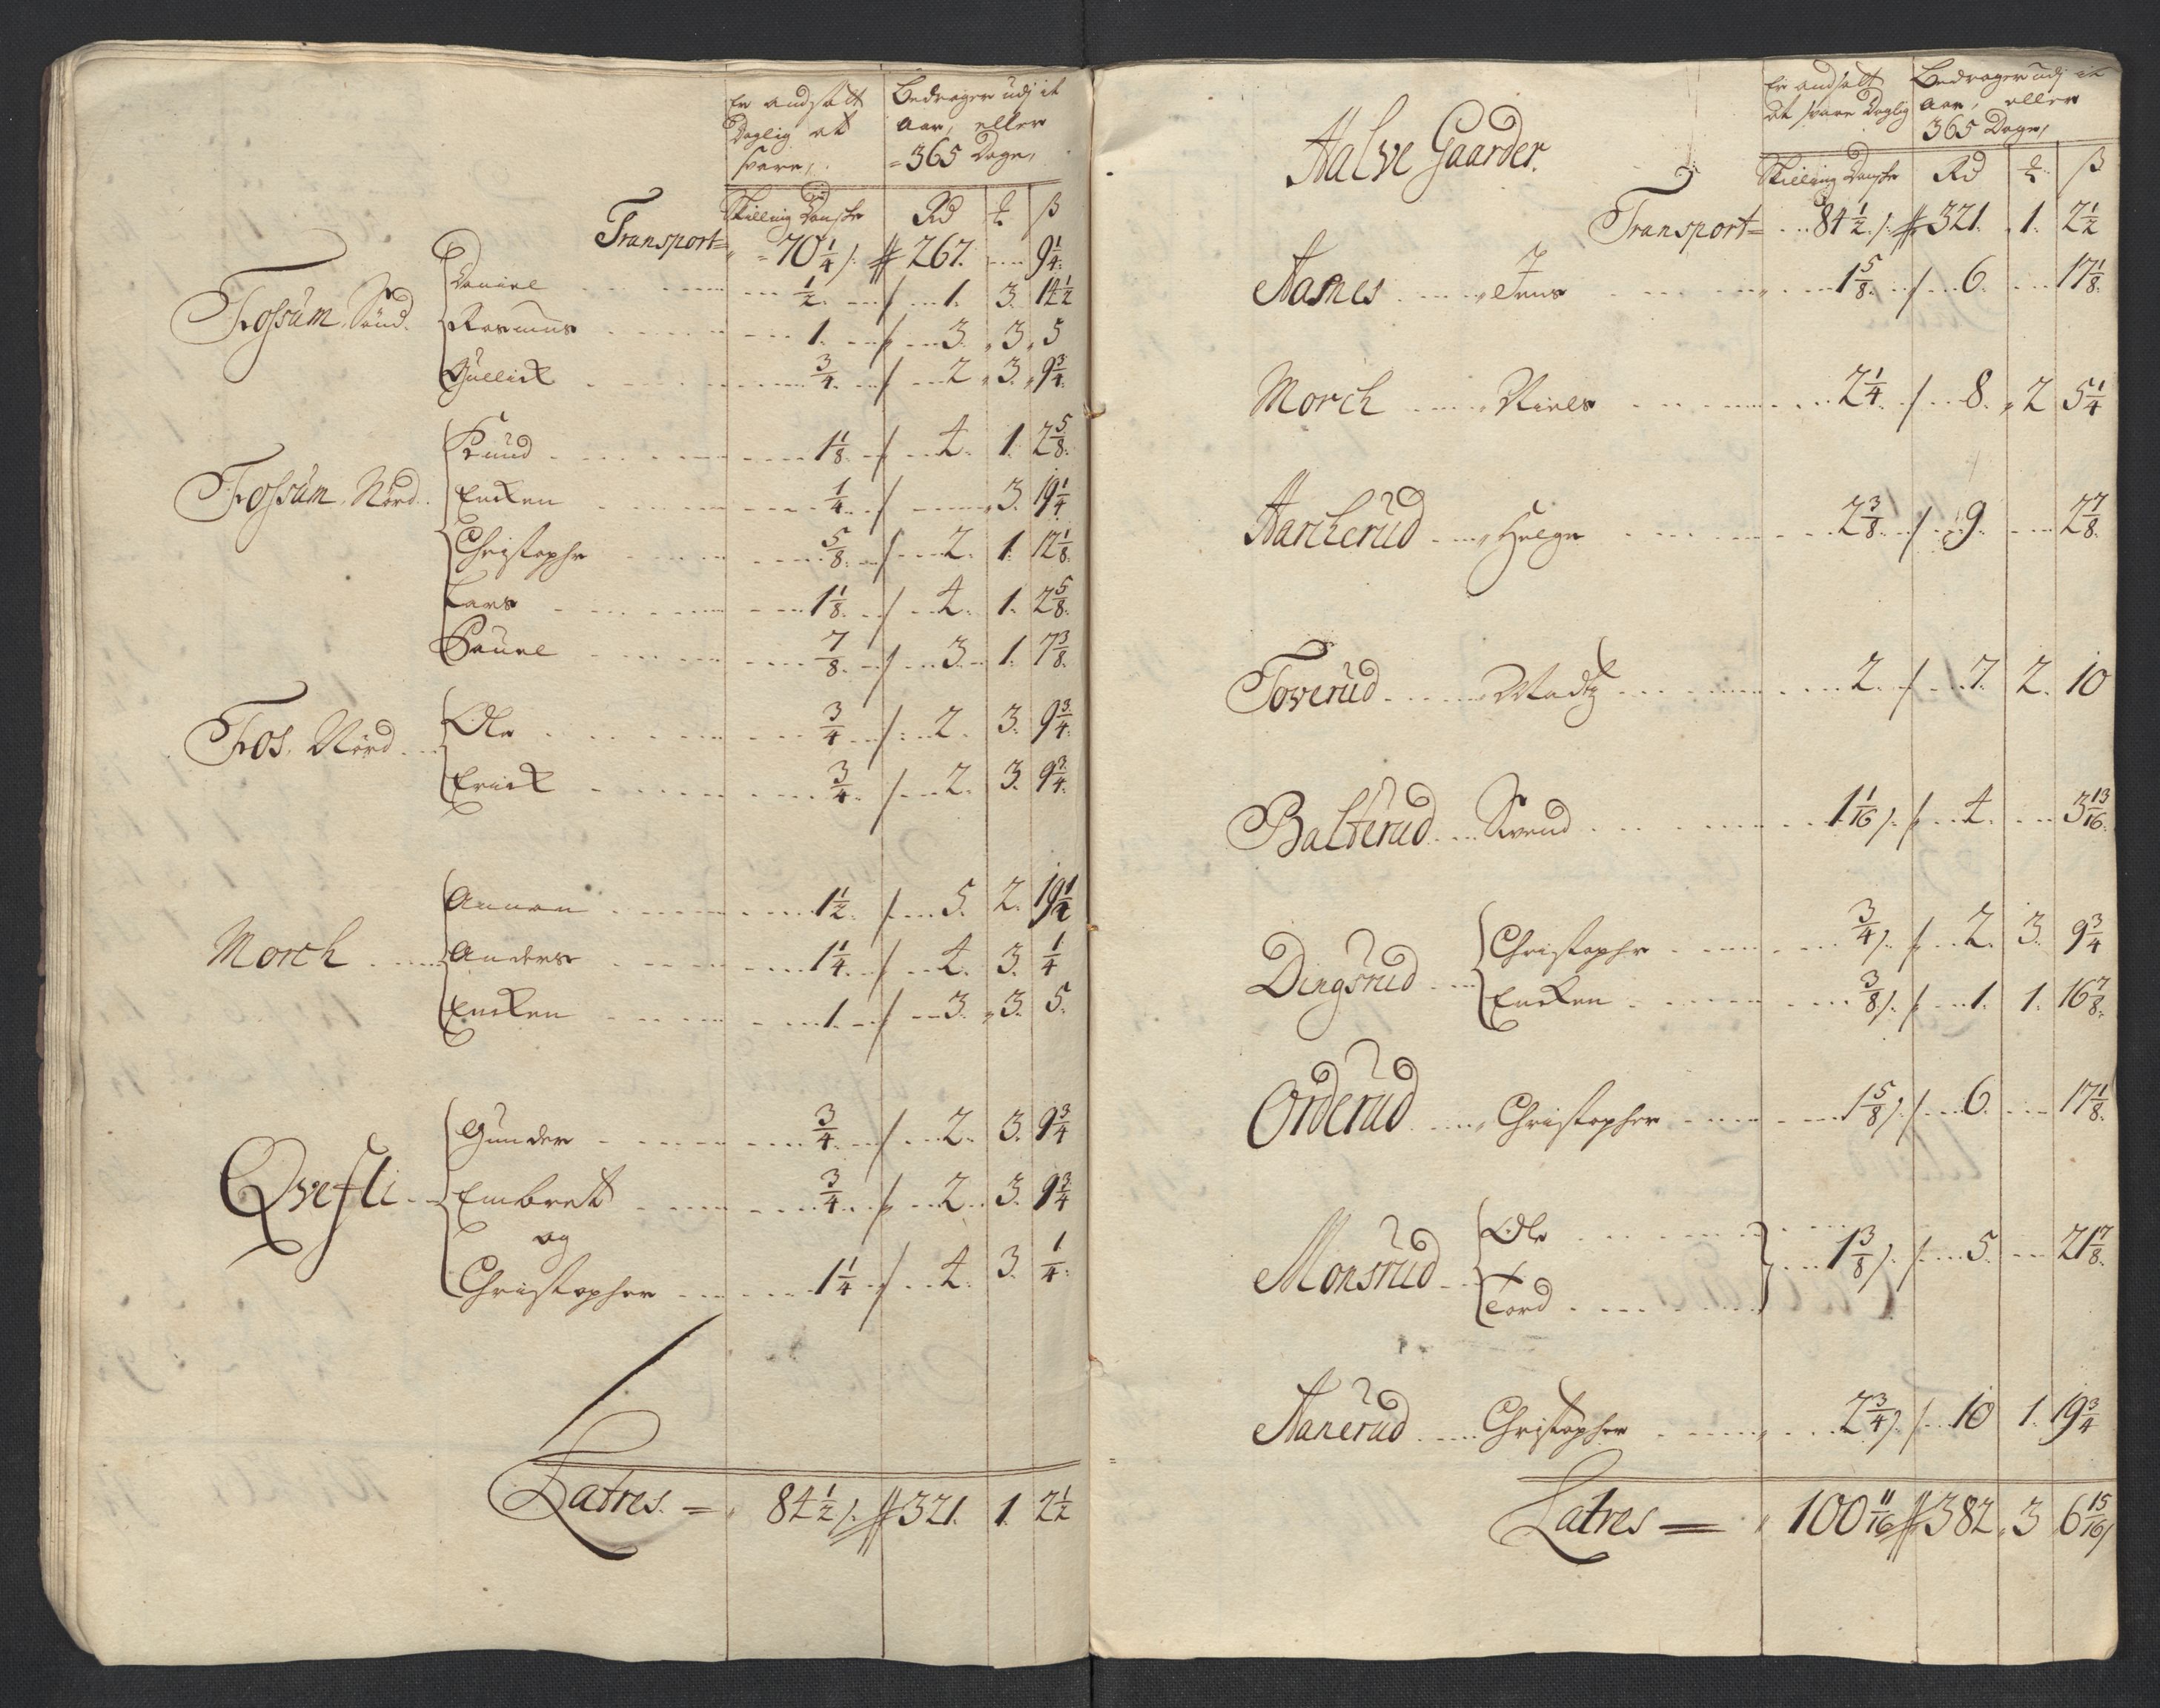 Er andsatt
Daglig at
svare,
Bedrager udj it
Aar, eller
= 365 Dage,
Skilling Danske Rd ß
Transport = 70 1/4 267. 9 1/4
Fossum, Sønd. Daniel 1/2 1. 3. 14 1/2
Rasmus 1. 3. 3. 5
Gullick 3/4 2 3. 9 3/4
Fossum, Nord. Knud 1 1/8 4. 1. 2 5/8
Encken 1/4 3. 19 1/4
Christophr 5/8 2. 1. 12 1/8
Lars 1 1/8 4. 1. 2 5/8
Pauel 7/8 3. 1. 7 3/8
Fos, Nord Ole 3/4 2. 3. 9 3/4
Erick 3/4 2. 3. 9 3/4
Morch Annon 1 1/2 5. 2. 19 1/4
Anders 1 1/4 4. 3. 1/4
Encken 1. 3. 3. 5.
Qvesli Gunder 3/4 2. 3. 9 3/4
Embret 3/4 2. 3. 9 3/4
og
Christopher 1 1/4 4. 3. 1/4
Latres = 84 1/2 321. 1. 2 1/2
Halve Gaarder.
Er andsatt
at svare Daglig
Bedrager udj it
Aar, eller
365 Dage,
Skilling Danske Rd ß
Transport = 84 1/2 321. 1. 2 1/2
Aames Jens 1 5/8 6. 17 1/8
Morch Niels 2 1/4 8. 2 5 1/4
Harkerud Helge 2 3/8 9. 2 7/8
Toverud Madtz 2. 7. 2. 10
Balterud Svend 1 1/16 4. 3 13/16
Dingsrud Christophr 3/4 2. 3. 9 3/4
Encken 3/8 1. 1. 16 7/8
Orderud Christopher 1 5/8 6. 17 1/8
Monsrud Ole
1 3/8 5. 21 7/8
Tord
Hanerud Christopher 2 3/4 10 1. 19 3/4
Latres = 100 11/16 382 3 6 15/16